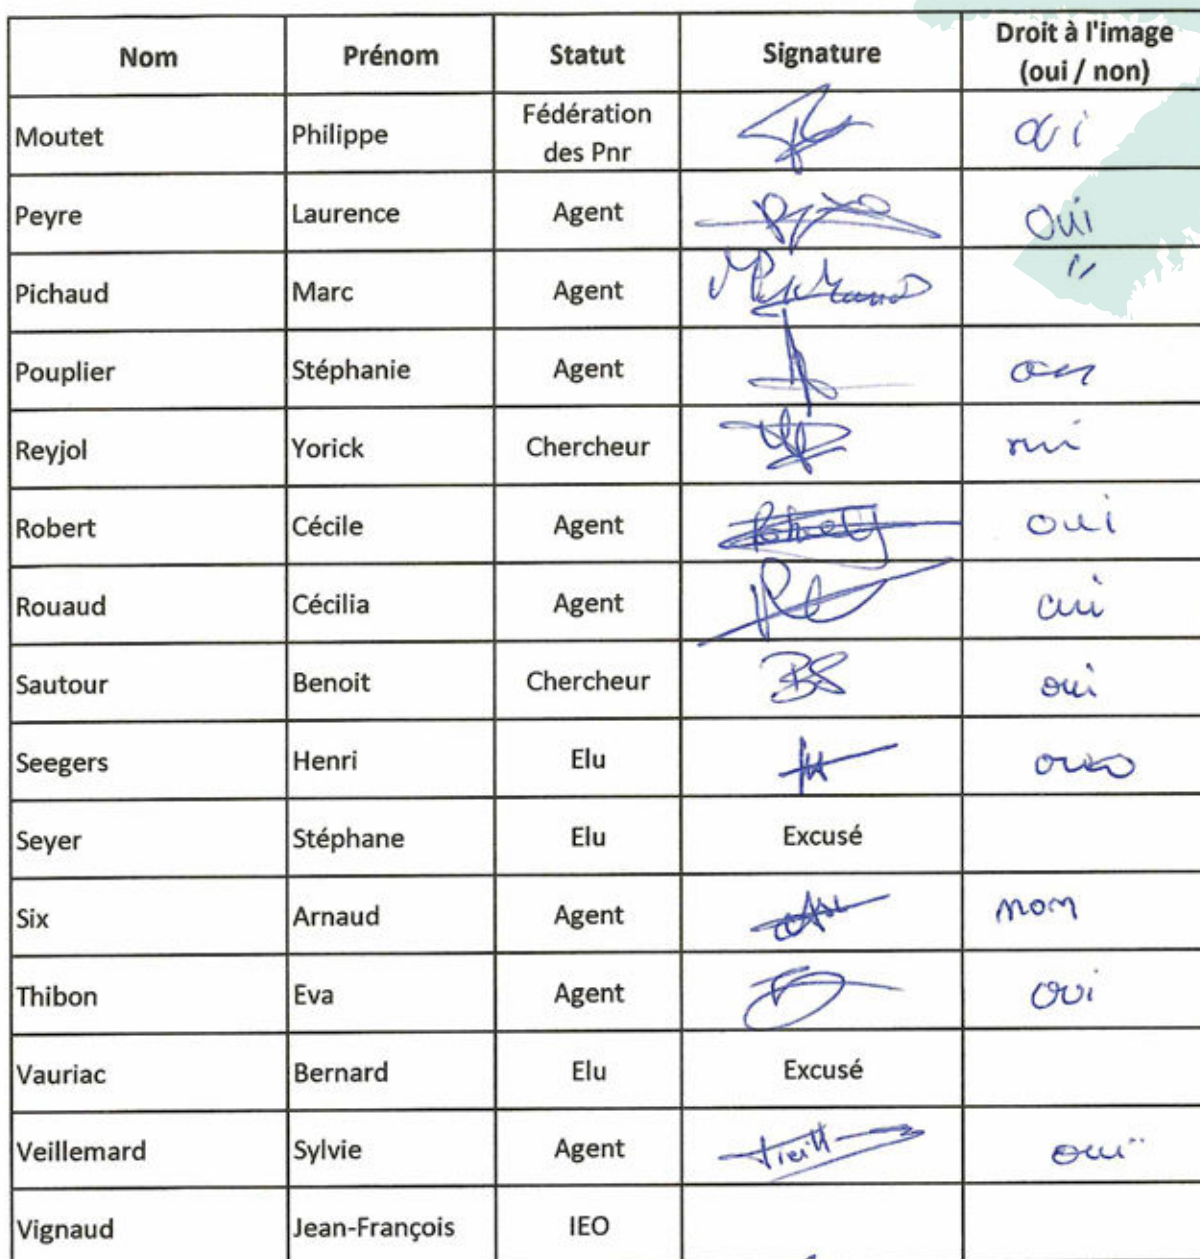 Nom Prénom Statut Signature Droit à l'image
(oui / non)
Moutet Philippe Fédération
des Pnr oui
Peyre Laurence Agent oui
Pichaud Marc Agent "
Pouplier Stéphanie Agent oui
Reyjol Yorick Chercheur oui
Robert Cécile Agent oui
Rouaud Cécilia Agent oui
Sautour Benoit Chercheur BS oui
Seegers Henri Elu oui
Seyer Stéphane Elu Excusé
Six Arnaud Agent non
Thibon Eva Agent oui
Vauriac Bernard Elu Excusé
Veillemard Sylvie Agent oui
Vignaud Jean-François IEO